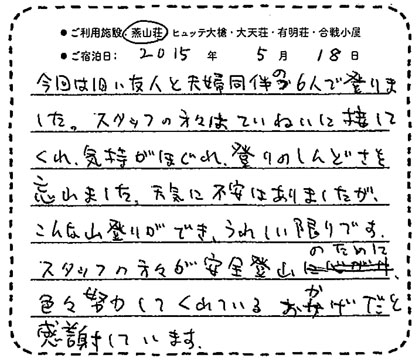 ●ご利用施設:燕山荘 ヒュッテ大槍・大天荘・有明荘・合戦小屋
●ご宿泊日: 2015 年 5 月 18 日
今回は旧い友人と夫婦同伴の6人で登りま
した。スタッフの方々はていねいに接して
くれ、気持がほぐれ、登りのしんどさを
忘れました。天気に不安はありましたが、
こんな山登りができ、うれしい限りです。
スタッフの方々が安全登山のために
色々努力してくれているおかげだと
感謝しています。